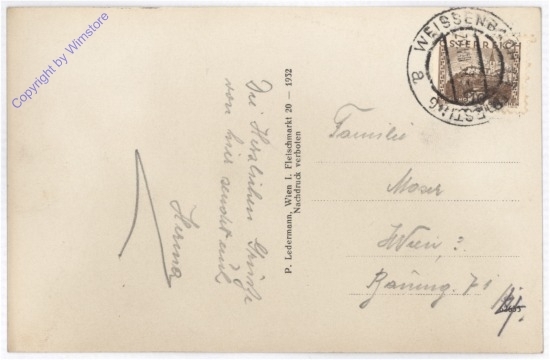 Copyright by Wimstore
Die Herzlichen Grüße
von hier sendet euch
Herma
P. Ledermann, Wien I, Fleischmarkt 20 — 1932
Nachdruck verboten
WEISSENBACH
TRIESTING
STERREICH
Familie
Moser
Wien, 3.
71